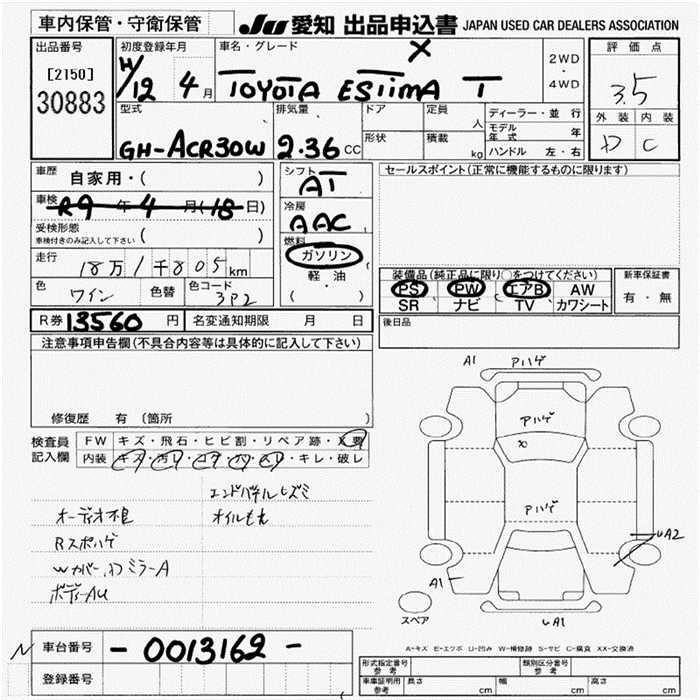 車内保管・守衛保管
JU 愛知 出品申込書 JAPAN USED CAR DEALERS ASSOCIATION
出品番号
[2150]
30883
初度登録年月
H/12 4月
車名・グレード
X
TOYOTA ESTIMA T
2WD
・
4WD
評価点
3.5
外装 内装
D C
型式
GH-ACR30W
排気量
2.36 CC
ドア
形状
定員 人
積載 kg
ディーラー・並行
モデル年式 年
ハンドル 左・右
車歴 自家用・( )
車検 R9年4月(18日)
受検形態
車検付きのみ記入して下さい ( )
走行 18万1千805km
色 ワイン 色替 色コード 3P2
シフト
AT
冷房
AAC
燃料
ガソリン
軽・油
( )
セールスポイント(正常に機能するものに限ります)
装備品(純正品に限り○をつけてください)
PS PW エアB AW
SR ナビ TV カワシート
新車保証書
有・無
後日品
R券 13560円 名変通知期限 月 日
注意事項申告欄(不具合内容等は具体的に記入して下さい)
修復歴 有 (箇所 )
検査員記入欄
FW キズ・飛石・ヒビ割・リペア跡・X要
内装 キズ・汚レ・コゲ・穴・スレ・キレ・破レ
エンドパネルヒズミ
オーディオ不良 オイルもれ
Rスポハゲ
Wカバー,ドアミラーA
ボディーAU
A1 Pハゲ
Pハゲ
X
Pハゲ
UA2
A1
UA1
スペア
A-キズ E-エクボ U-凹み W-補修跡 S-サビ C-腐食 XX-交換済
N
車台番号 - 0013162 -
登録番号
形式指定番号 参考
類別区分番号 参考
車庫証明用 参考 長さ cm 幅 cm 高さ cm